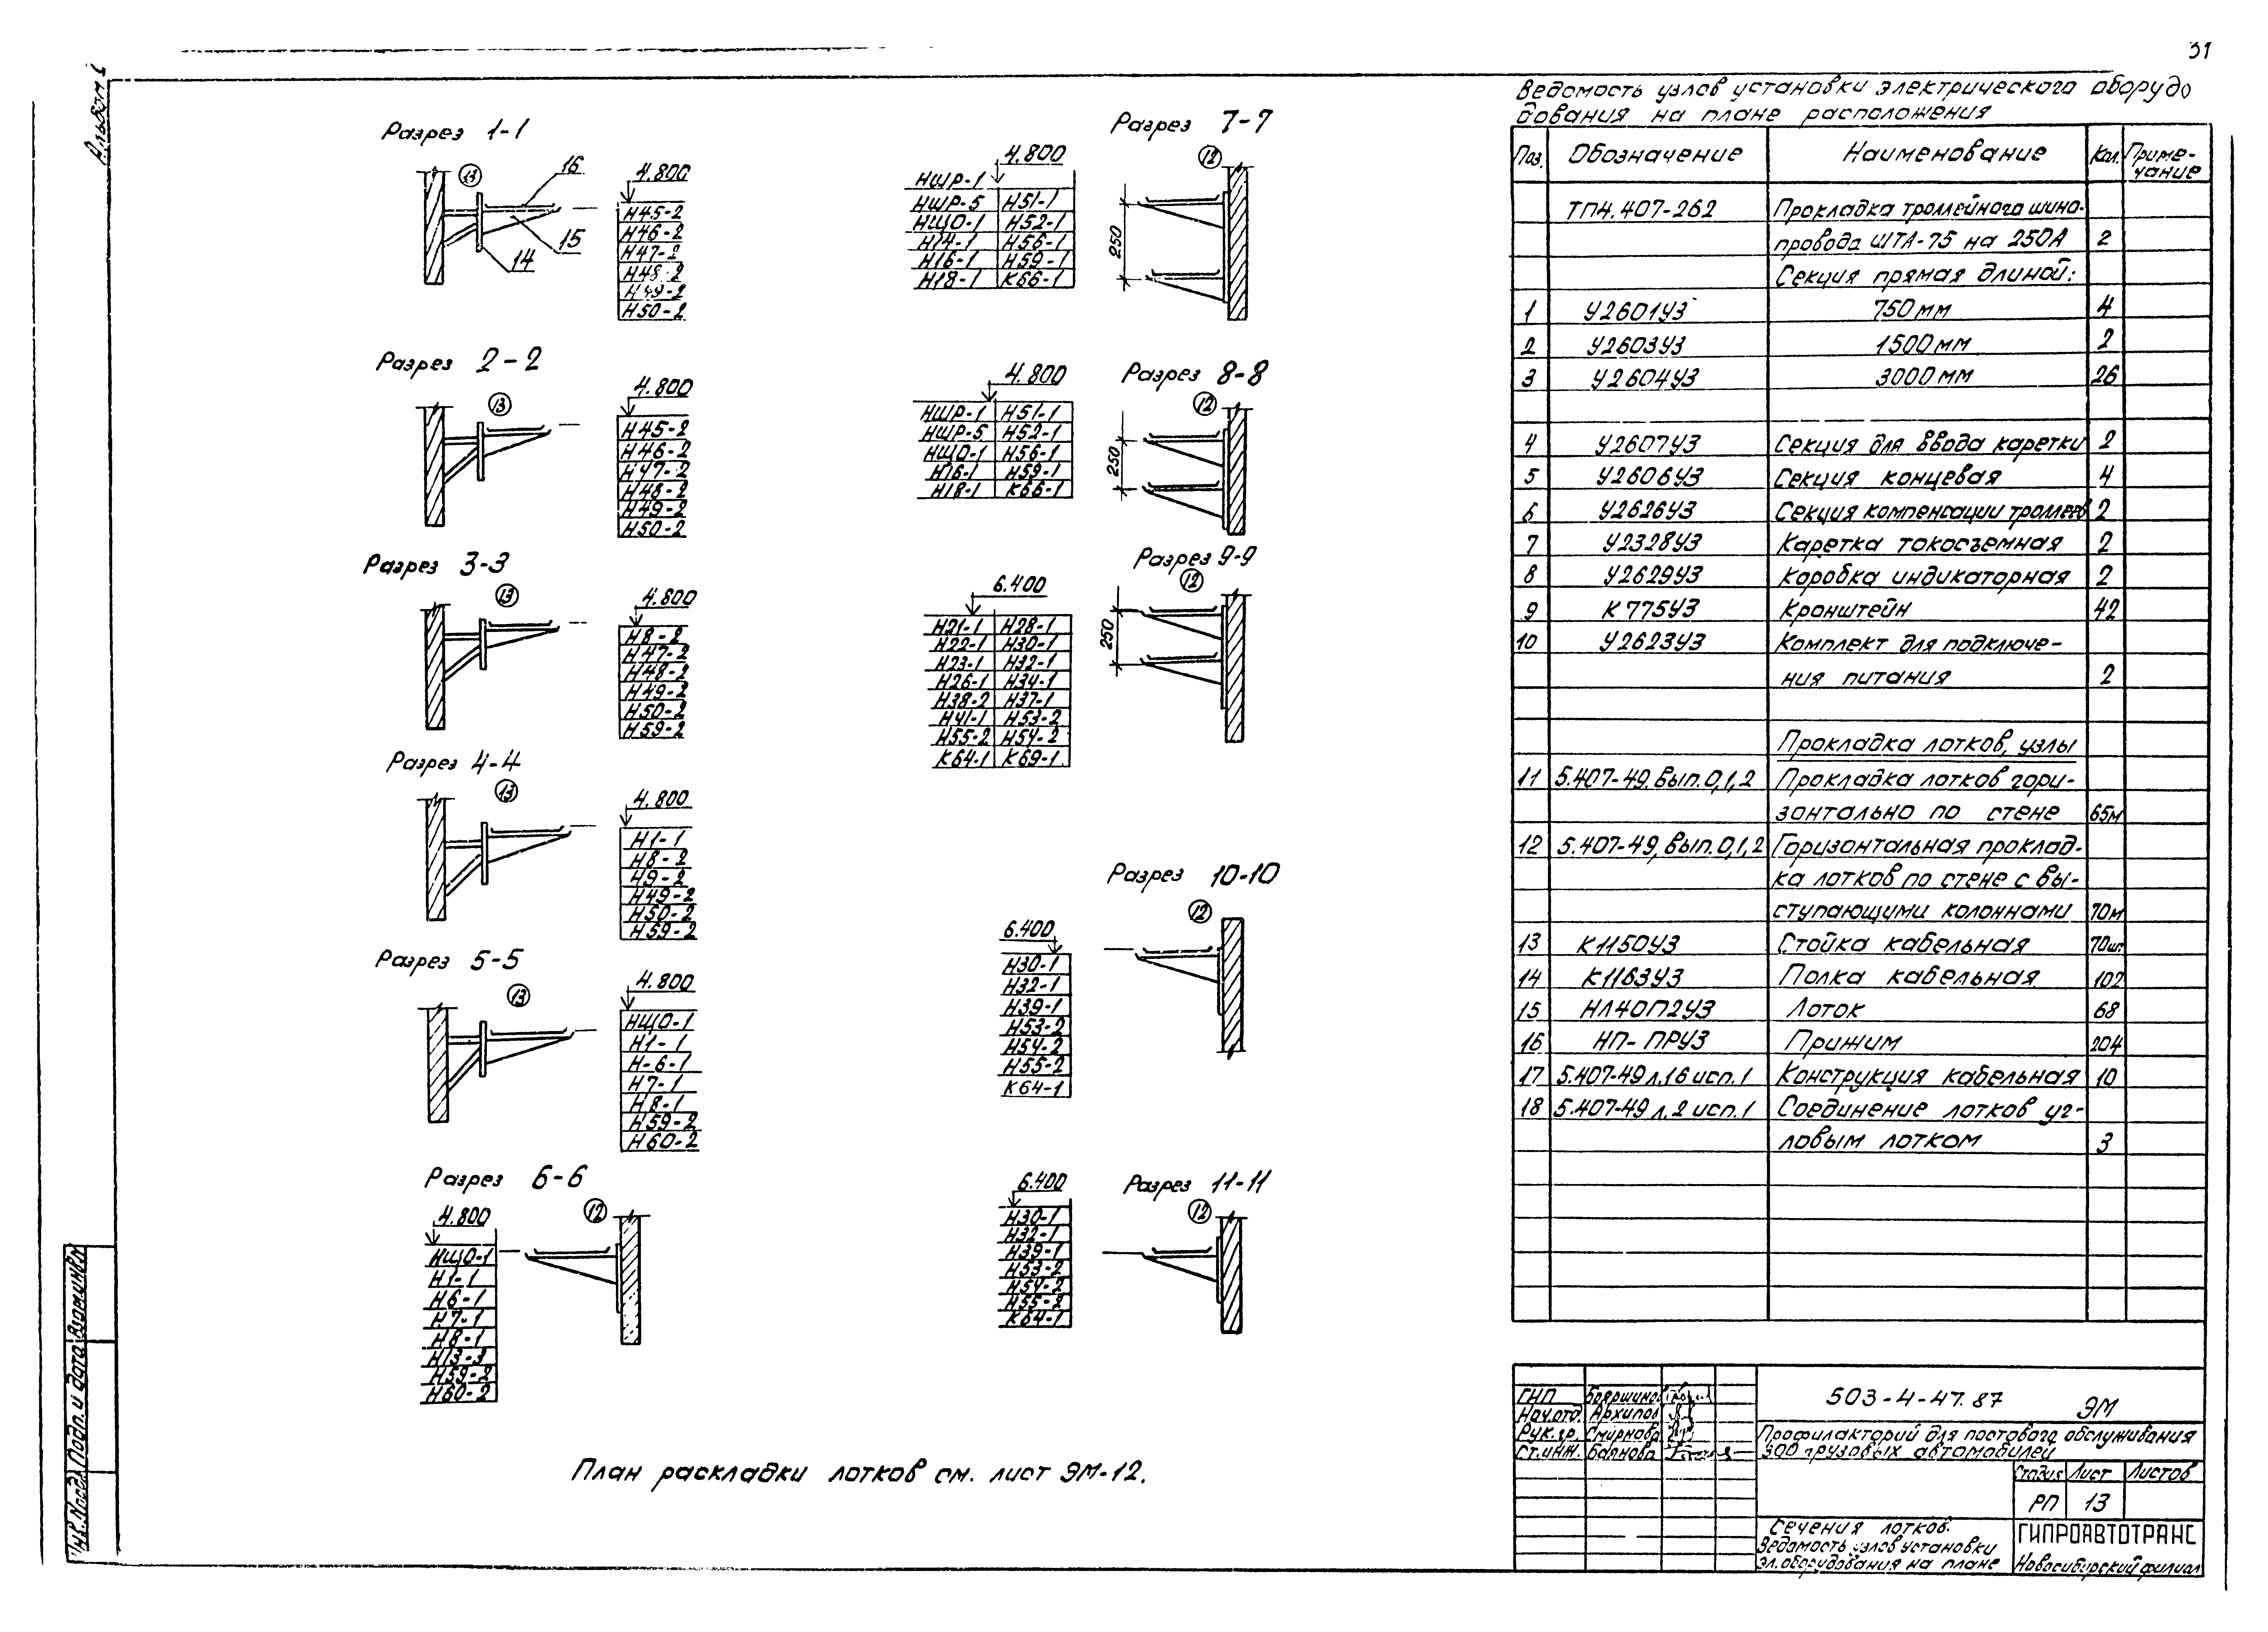 31
Альбом
Разрез 1-1
13
16
15
14
4.800
Н45-2
Н46-2
Н47-2
Н48-2
Н49-2
Н50-2
Разрез 2-2
13
4.800
Н45-2
Н46-2
Н47-2
Н48-2
Н49-2
Н50-2
Разрез 3-3
13
4.800
Н8-2
Н47-2
Н48-2
Н49-2
Н50-2
Н59-2
Разрез 4-4
13
4.800
Н1-1
Н8-2
Н9-2
Н49-2
Н50-2
Н59-2
Разрез 5-5
13
4.800
НЩО-1
Н1-1
Н-6-1
Н7-1
Н8-1
Н59-2
Н60-2
Разрез 6-6
12
4.800
НЩО-1
Н1-1
Н6-1
Н7-1
Н8-1
Н13-3
Н59-2
Н60-2
Разрез 7-7
12
4.800
НШР-1
НШР-5 Н51-1
НЩО-1 Н52-1
Н14-1 Н56-1
Н16-1 Н59-1
Н18-1 К66-1
250
Разрез 8-8
12
4.800
НШР-1 Н51-1
НШР-5 Н52-1
НЩО-1 Н56-1
Н16-1 Н59-1
Н18-1 К66-1
250
Разрез 9-9
12
6.400
Н21-1 Н28-1
Н22-1 Н30-1
Н23-1 Н32-1
Н26-1 Н34-1
Н38-2 Н37-1
Н41-1 Н53-2
Н55-2 Н54-2
К64-1 К69-1
250
Разрез 10-10
12
6.400
Н30-1
Н32-1
Н39-1
Н53-2
Н54-2
Н55-2
К64-1
Разрез 11-11
12
6.400
Н30-1
Н32-1
Н39-1
Н53-2
Н54-2
Н55-2
К64-1
План раскладки лотков см. лист ЭМ-12.
Ведомость узлов установки электрического оборудо
дования на плане расположения
Поз. Обозначение Наименование Кол. Приме-
чание
ТП4.407-262 Прокладка троллейного шино-
провода ШТА-75 на 250А 2
Секция прямая длиной:
1 У2601У3 750мм 4
2 У2603У3 1500мм 2
3 У2604У3 3000мм 26
4 У2607У3 Секция для ввода каретки 2
5 У2606У3 Секция концевая 4
6 У2626У3 Секция компенсации троллеев 2
7 У2328У3 Каретка токосъемная 2
8 У2629У3 Коробка индикаторная 2
9 К775У3 Кронштейн 42
10 У2623У3 Комплект для подключе-
ния питания 2
Прокладка лотков, узлы
11 5.407-49, вып.0,1,2 Прокладка лотков гори-
зонтально по стене 65м
12 5.407-49, вып.0,1,2 Горизонтальная проклад-
ка лотков по стене с вы-
ступающими колоннами 70м
13 К1150У3 Стойка кабельная 70шт
14 К1163У3 Полка кабельная 102
15 НЛ40П2У3 Лоток 68
16 НП-ПРУ3 Прижим 204
17 5.407-49 л.16 исп.1 Конструкция кабельная 10
18 5.407-49 л.2 исп.1 Соединение лотков уг-
ловым лотком 3
ГИП Бояршинов
Нач.отд. Архипов
Рук.гр. Смирнова
Ст.инж. Баянова
503-4-47.87 ЭМ
Профилакторий для постового обслуживания
300 грузовых автомобилей
Стадия Лист Листов
РП 13
Сечения лотков.
Ведомость узлов установки
эл.оборудования на плане
ГИПРОАВТОТРАНС
Новосибирский филиал
Инв.№подл. Подп. и дата Взам.инв.№